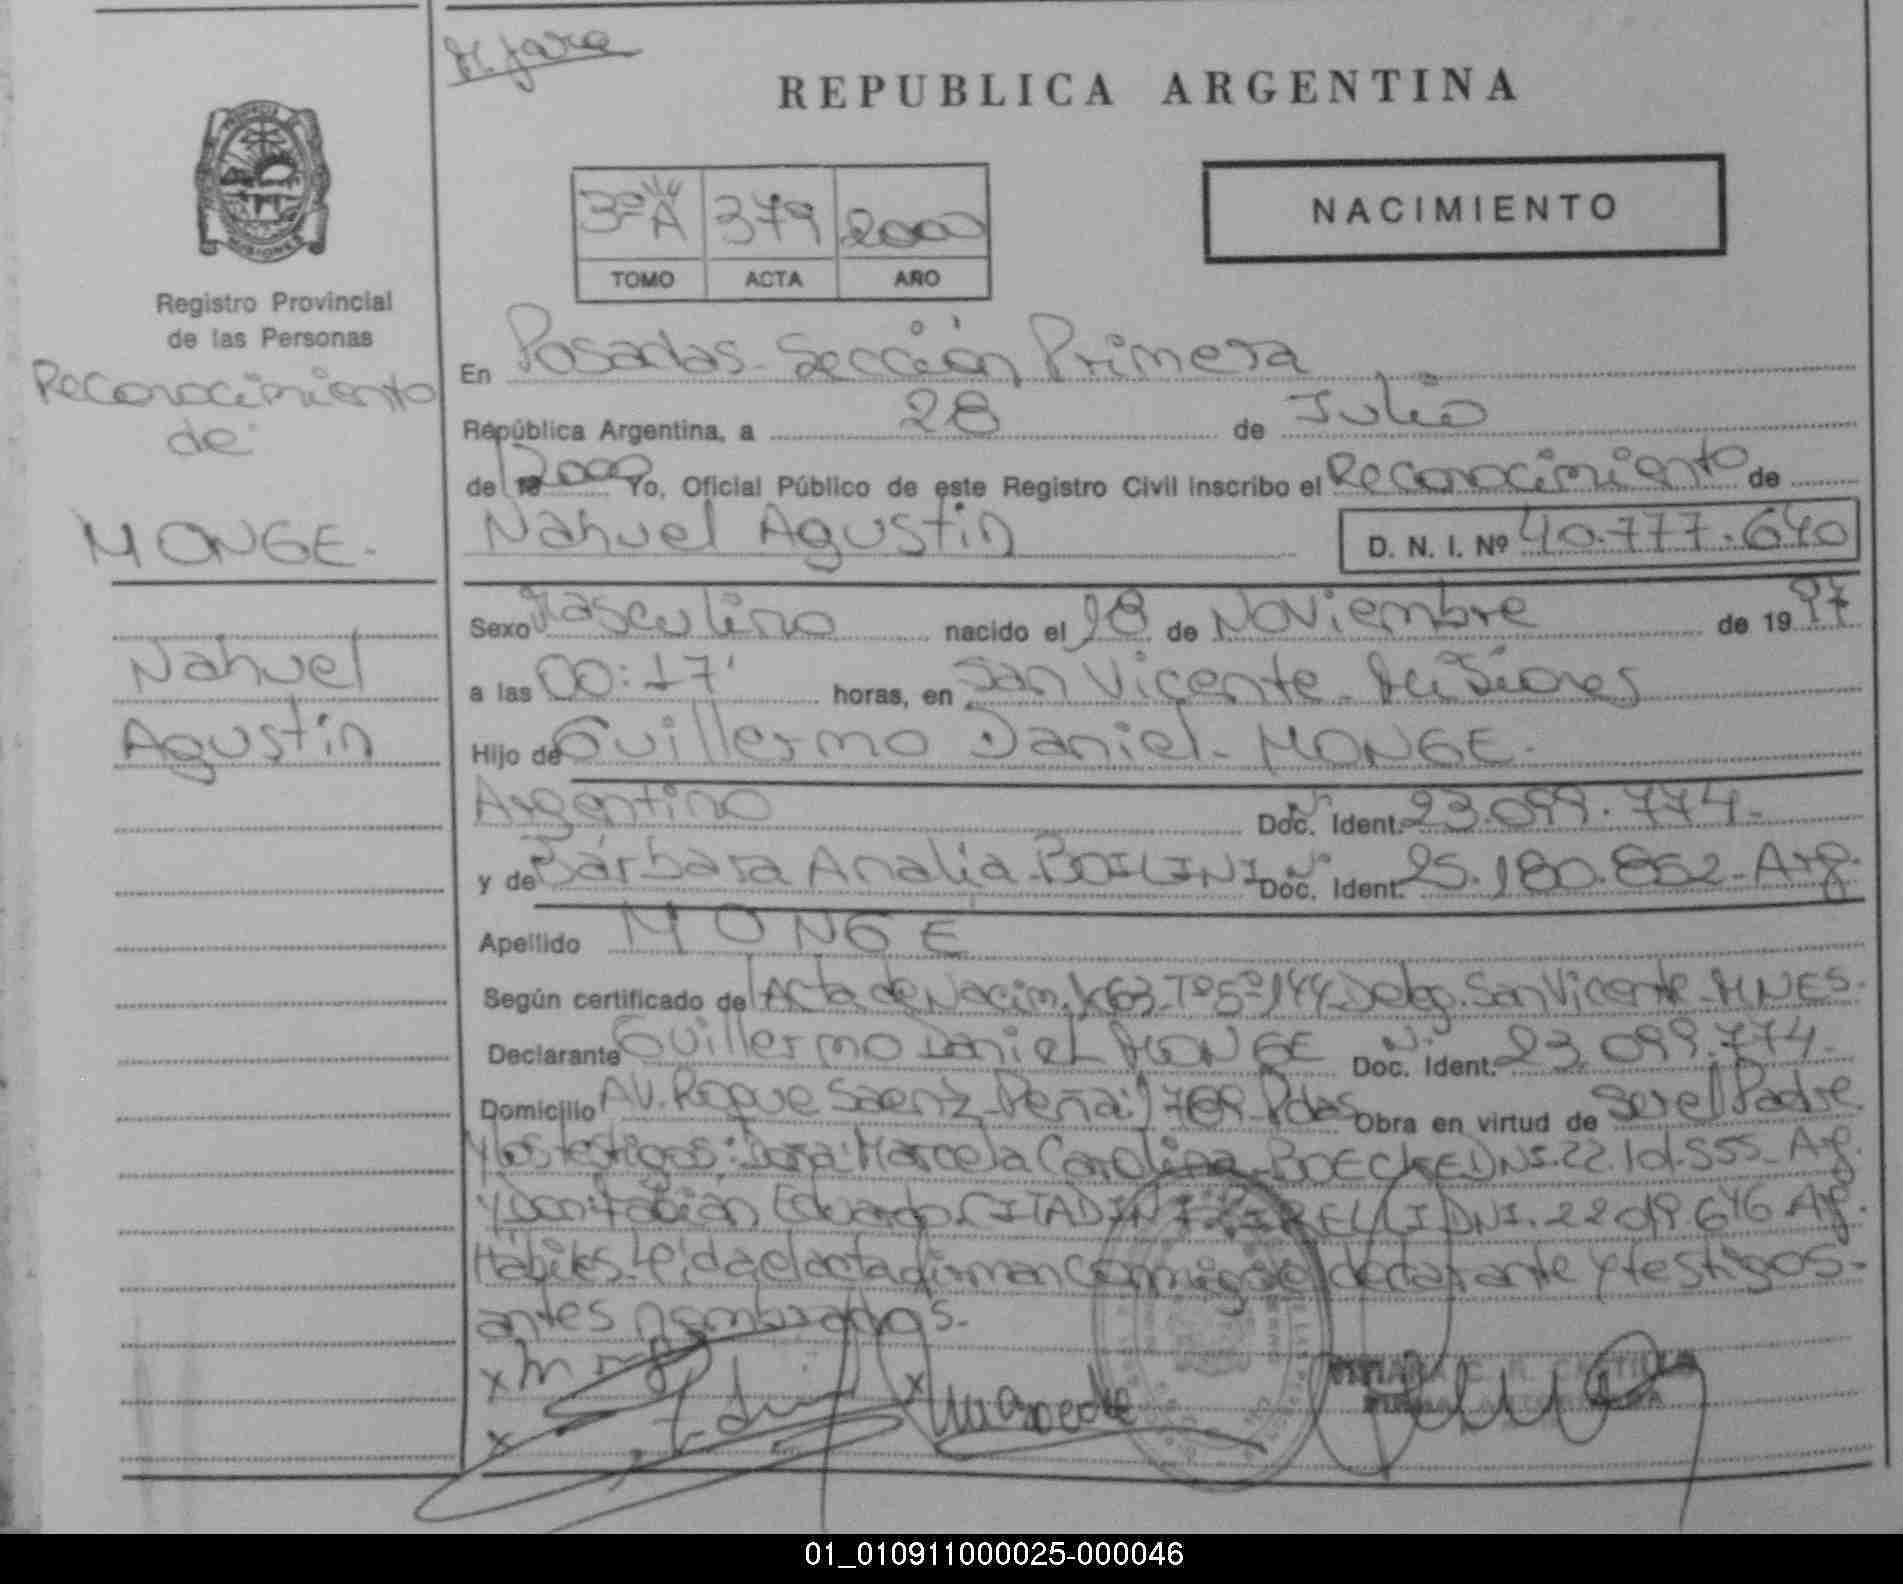 M. Jara
REPUBLICA ARGENTINA
NACIMIENTO
3º A 379 2000
TOMO ACTA AÑO
Registro Provincial
de las Personas
Reconocimiento
de
MONGE.
Nahuel
Agustín
En Posadas - Sección Primera
República Argentina, a 28 de Julio
de 2000 Yo, Oficial Público de este Registro Civil inscribo el Reconocimiento de
Nahuel Agustín D. N. I. Nº 40.777.640
Sexo Masculino nacido el 18 de Noviembre de 1997
a las 00:17' horas, en San Vicente - Misiones
Hijo de Guillermo Daniel - MONGE.
Argentino Doc. Ident. Nº 23.099.774.
y de Bárbara Analía BOILINI Doc. Ident. Nº 25.180.852 - Arg.
Apellido MONGE
Según certificado de Acta de Nacim. 163 Tº 5º 144 Deleg. San Vicente - MNES.
Declarante Guillermo Daniel MONGE Doc. Ident. Nº 23.099.774.
Domicilio AV. Roque Saenz Peña: 1769 - Pdas Obra en virtud de ser el Padre
y los testigos: Doña: Marcela Carolina BOECKE DNI. 22.101.555 - Arg.
y Don: Fabián Eduardo CITADINI DNI. 22.019.646 Arg.
Hábiles. Leída el acta firman conmigo el declarante y testigos -
antes nombrados.
01_010911000025-000046